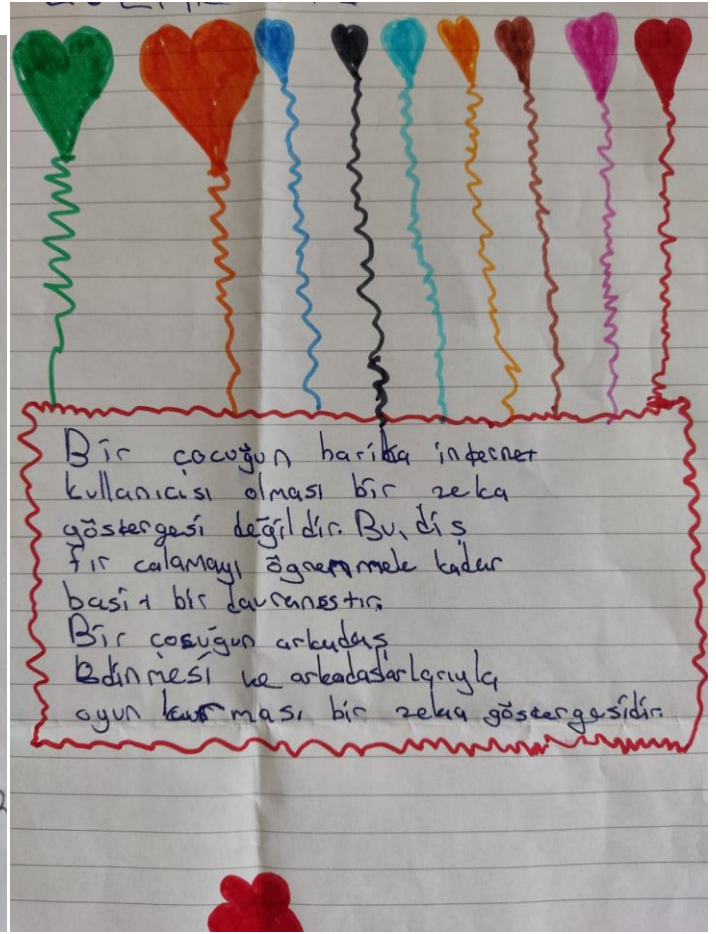 Bir çocuğun harika internet
kullanıcısı olması bir zeka
göstergesi değildir. Bu, diş
fır calamayı ögrenmmele kadar
basit bir davranıstır.
Bir cosuğun arkadaş
Edinmesi ve arkadasarlarıyla
oyun kurması bir zeka göstergesidir.